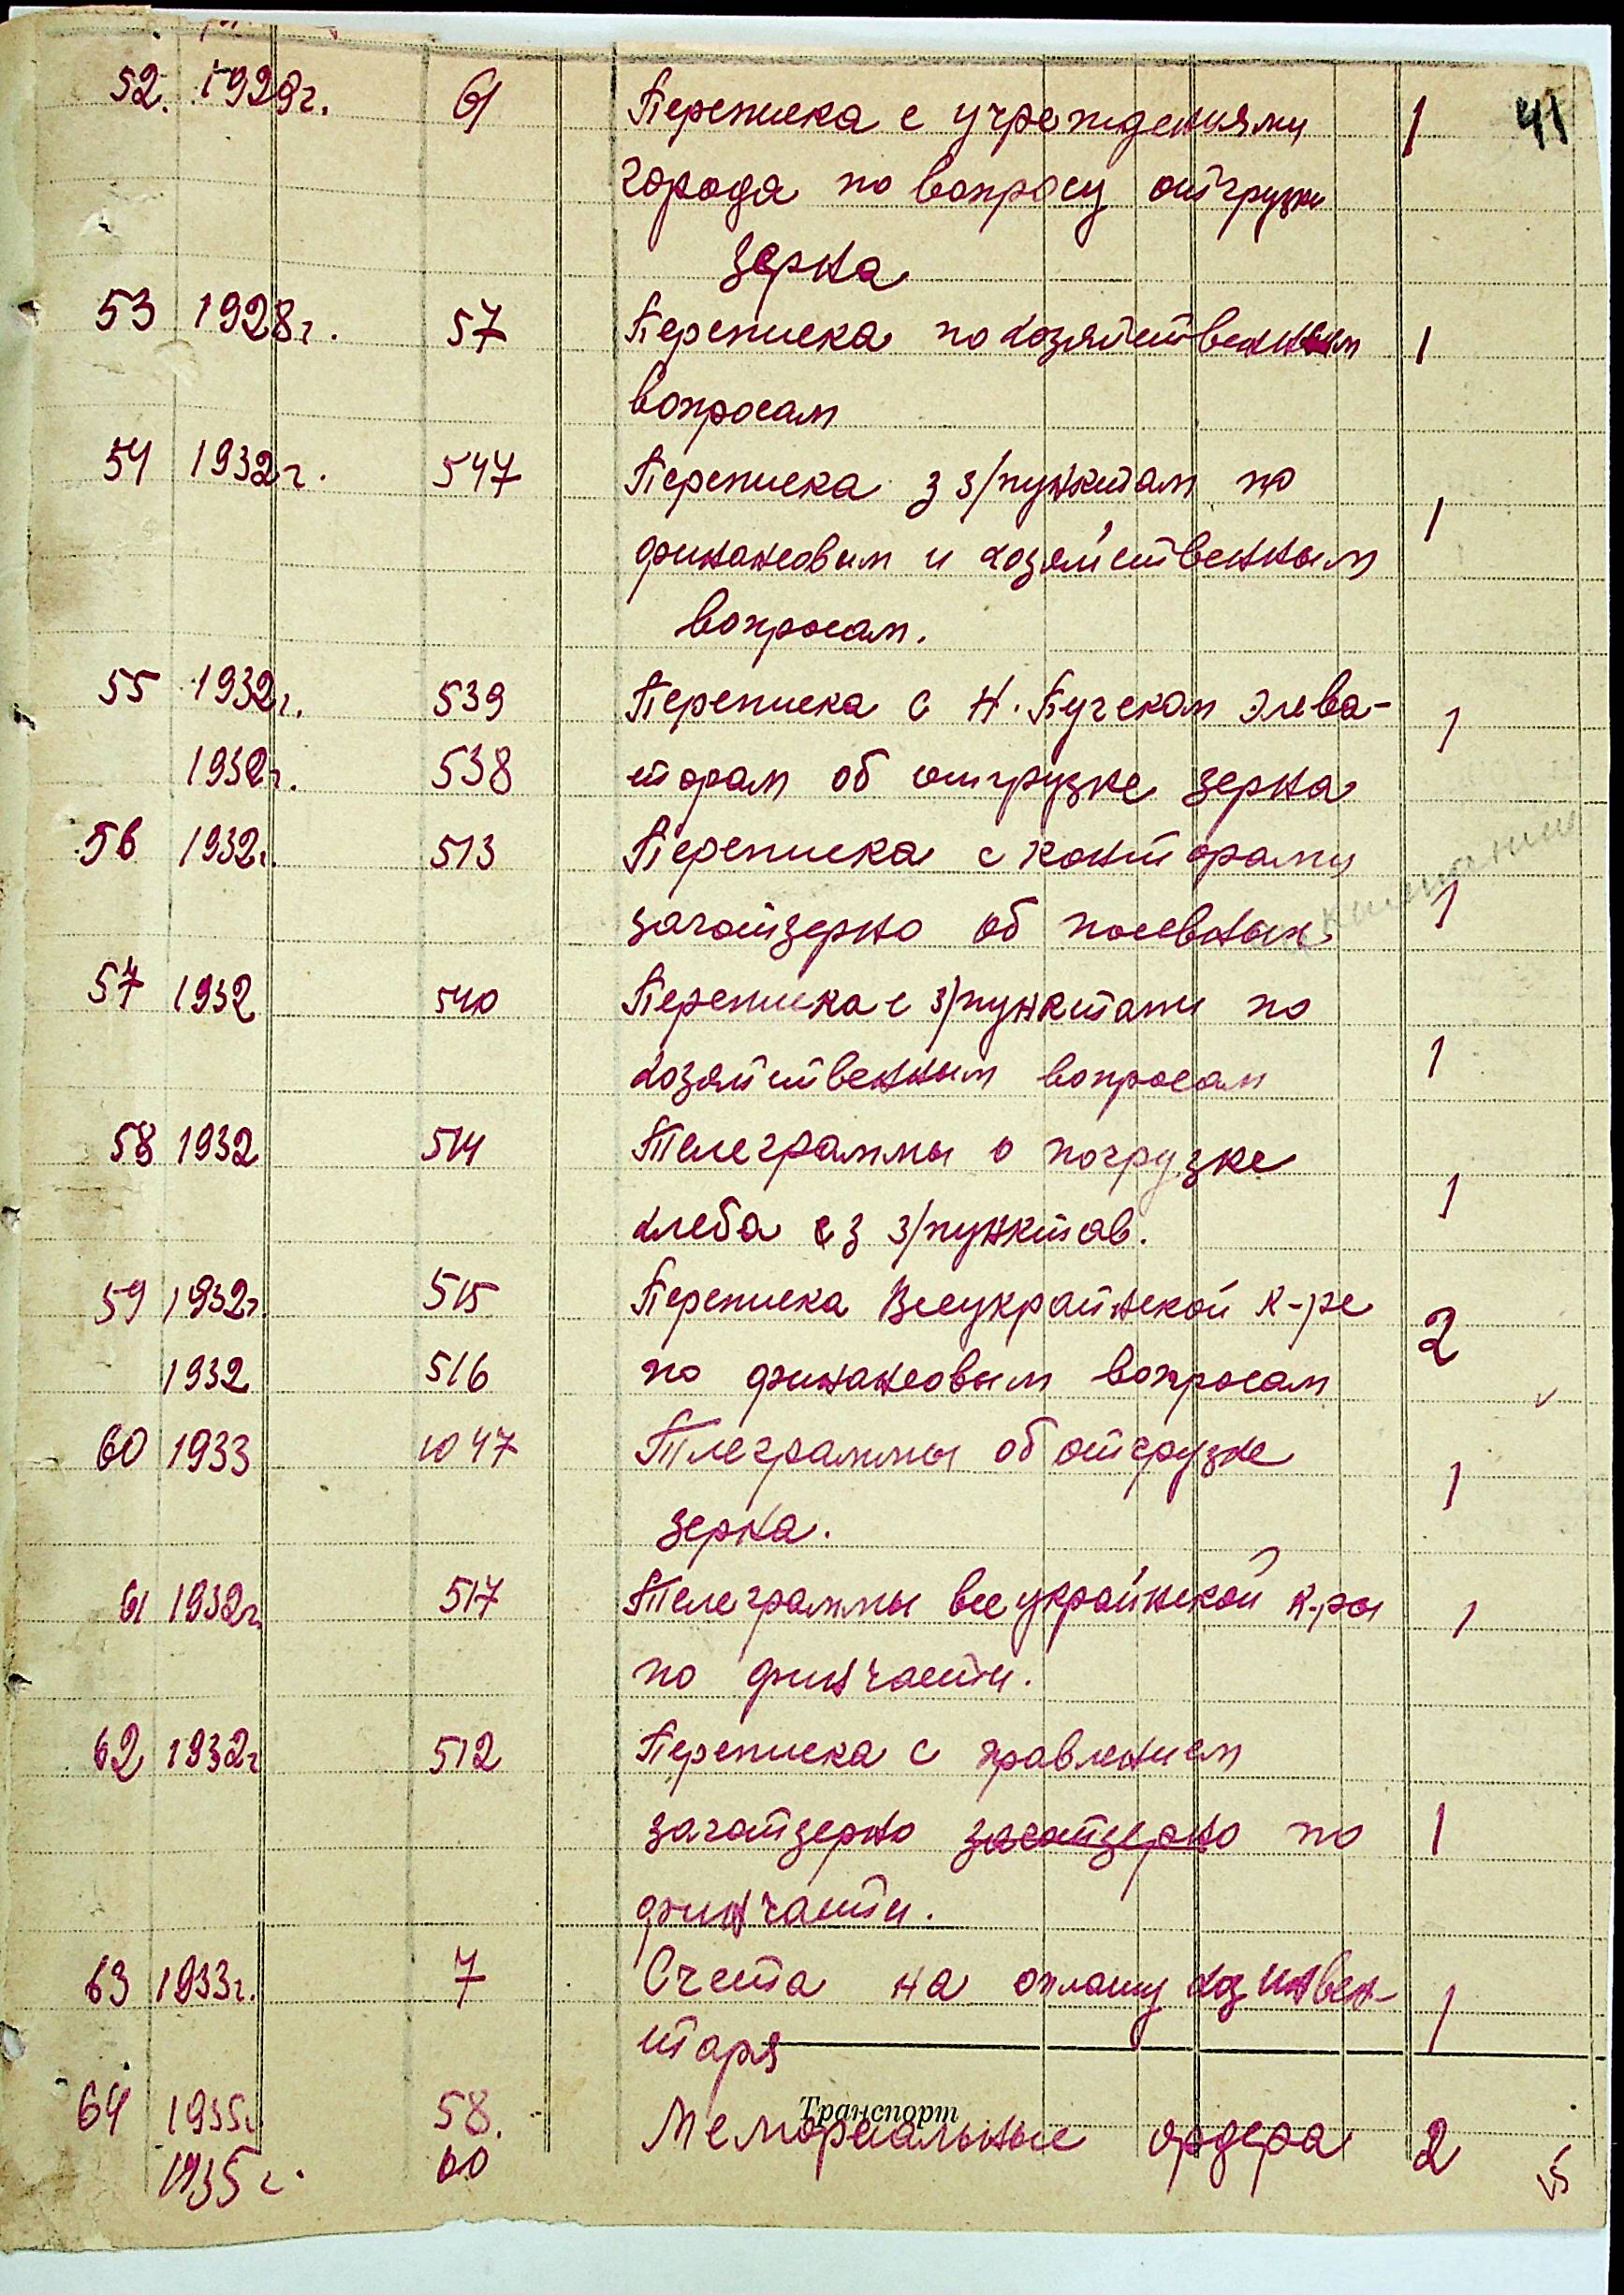 41
52. 1929г. 61 Переписка с учреждениями 1
города по вопросу отгрузки
зерна
53 1928г. 57 Переписка по хозяйственным 1
вопросам
54 1932г. 547 Переписка з з/пунктам по 1
финансовым и хозяйственным
вопросам.
55 1932г. 539 Переписка с Н. Бугским Элева- 1
1932г. 538 торам об отгрузке зерна
56 1932г. 513 Переписка с конторами
заготзерно об посевных 1
57 1932 540 Переписка с з/пунктами по
хозяйственным вопросам 1
58 1932 514 Телеграммы о погрузке
хлеба с з з/пунктов. 1
59 1932г. 515 Переписка Всеукраинской к-ре 2
1932 516 по финансовым вопросам
60 1933 1047 Тлеграммы об отгрузке 1
зерна.
61 1932г 517 Телеграммы всеукраинской к-ры 1
по финчасти.
62 1932г 512 Переписка с правлением
заготзерно заготзерно по 1
финчасти.
63 1933г. 7 Счета на оплату хоз инвен- 1
таря
Транспорт
64 1935г. 58. Мемориальные ордера 2
1935г. 60 15